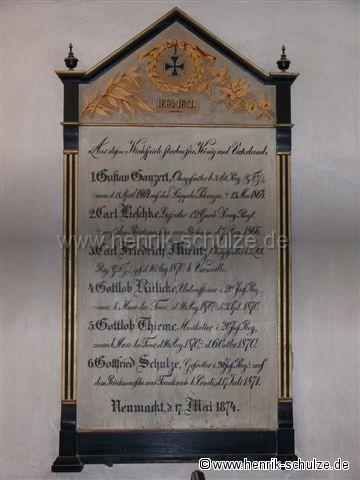 1864-1871.
Aus diesem Kirchspiele starben für König und Vaterland.
1. Gustav Ganzert,
d. 18 April 1864 auf den Düppeler Schanzen, † 13. Mai 1864.
2. Carl Lieschke, Gefreiter
d. 7. Aug. 1866.
3. Carl Friedrich
d. 16. Aug. 1870 b. Vionville.
4. Gottlob Rülicke, Unterofficier i 20 Inf. Reg.
verw. b. Mars-la-Tour, d. 16 Aug. 1870, † d. 3. Spt. 1870.
5. Gottlob Thieme, Musketier i 20 Inf. Reg.
verw. b. Mars-la-Tour, d. 16 Aug. 1870, † d. 6 Octbr. 1870.
6. Gottfried Schulze, Gefreiter i 20 Inf. Reg. † auf
dem Rückmarsche aus Frankreich b. d. 17 Juli 1871.
Neumarkt, d. 17. Mai 1874.
© www.henrik-schulze.de
© www.henrik-schulze.de